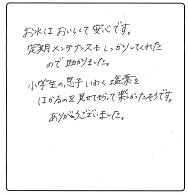 お水はおいしくて安心です。
定期メンテナンスもしっかりしてくれた
ので助かりました。
小学生の息子いわく塩素を
はかるのを見せてもらって楽しかったそうです。
ありがとうございました。